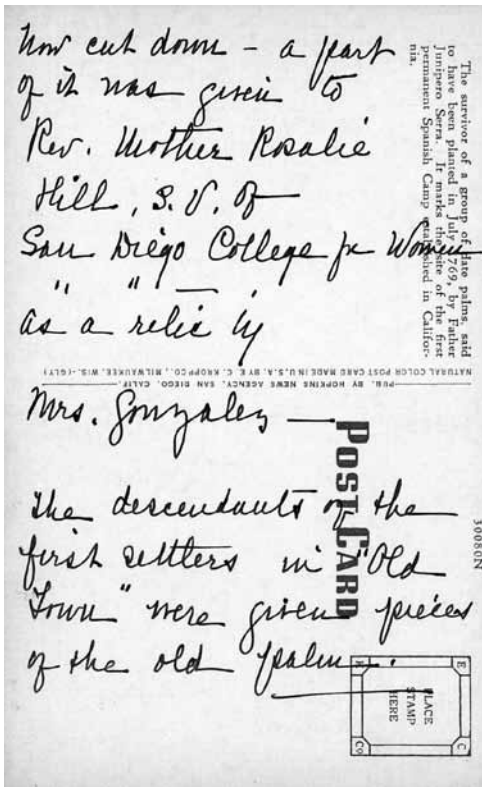 Now cut down – a part
of it was given to
Rev. Mother Rosalie
Hill, S.V. of
San Diego College for Women
" " —
as a relic by
Mrs. Gonzales —
The descendants of the
first settlers in "Old
Town" were given pieces
of the old palm.
The survivor of a group of date palms, said
to have been planted in July 1769, by Father
Junipero Serra. It marks the site of the first
permanent Spanish Camp established in Califor-
nia.
PUB. BY HOPKINS NEWS AGENCY, SAN DIEGO, CALIF.
NATURAL COLOR POST CARD MADE IN U.S.A. BY E. C. KROPP CO., MILWAUKEE, WIS. (GLY)
POST CARD
30080N
PLACE
STAMP
HERE
E C K Co